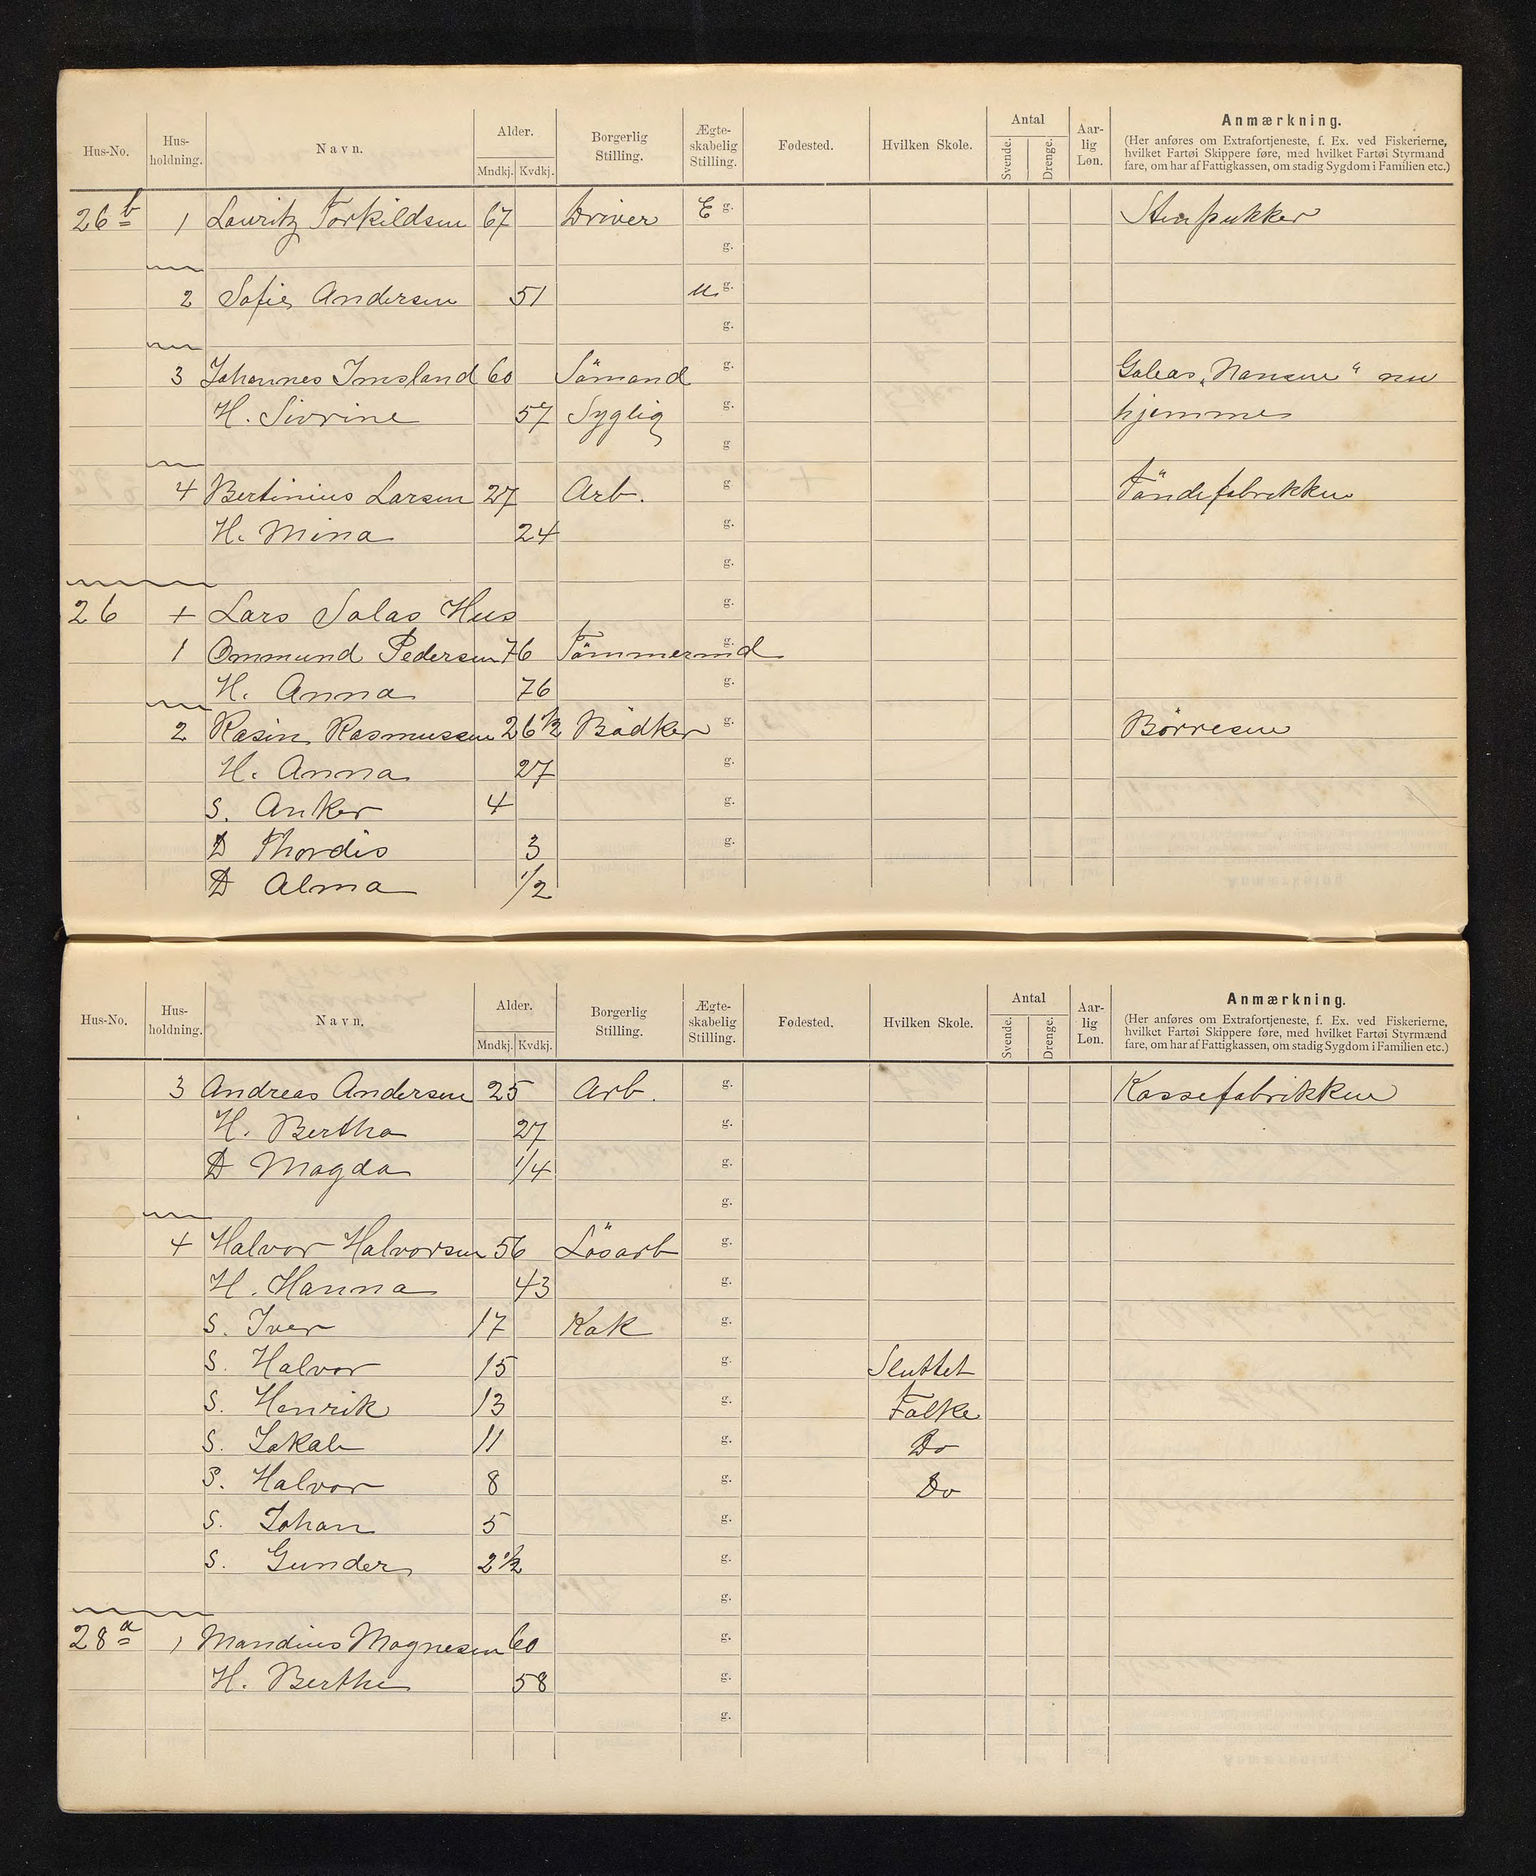 Hus-No. Hus-holdning. Navn. Alder. Mndkj. Kvdkj. Borgerlig Stilling. Ægte-skabelig Stilling. Fødested. Hvilken Skole. Antal Svende. Drenge. Aar-lig Løn. Anmærkning.
(Her anføres om Extrafortjeneste, f. Ex. ved Fiskerierne,
hvilket Fartøi Skippere føre, med hvilket Fartøi Styrmænd
fare, om har af Fattigkassen, om stadig Sygdom i Familien etc.)
26 b 1 Lauritz Torkildsen 67 Driver E g. Stenpukker
g.
2 Sofie Andersen 51 u. g.
g.
3 Johannes Imsland 60 Sömand g. Galeas „Nansen“ nu
H. Sivrine 57 Syglig g. hjemme
g.
4 Bertinius Larsen 27 Arb. g. Töndefabrikken
H. Mina 24 g.
g.
26 + Lars Solas Hus g.
1 Ommund Pedersen 76 Tömmermd g.
H. Anna 76 g.
2 Rasin Rasmussen 26 1/2 Bödker g. Börresen
H. Anna 27 g.
S. Anker 4 g.
D Thordis 3 g.
D Alma 1/2
Hus-No. Hus-holdning. Navn. Alder. Mndkj. Kvdkj. Borgerlig Stilling. Ægte-skabelig Stilling. Fødested. Hvilken Skole. Antal Svende. Drenge. Aar-lig Løn. Anmærkning.
(Her anføres om Extrafortjeneste, f. Ex. ved Fiskerierne,
hvilket Fartøi Skippere føre, med hvilket Fartøi Styrmænd
fare, om har af Fattigkassen, om stadig Sygdom i Familien etc.)
3 Andreas Andersen 25 Arb. g. Kassefabrikken
H. Bertha 27 g.
D Magda 1/4 g.
g.
4 Halvor Halvorsen 56 Lösarb g.
H. Hanna 43 g.
S. Iver 17 Kok g.
S. Halvor 15 g. Sluttet
S. Henrik 13 g. Folke
S. Jakob 11 g. Do
S. Halvor 8 g. Do
S. Johan 5 g.
S. Gunder 2 1/2 g.
g.
28 a 1 Mandius Magnesen 60 g.
H. Berthe 58 g.
g.